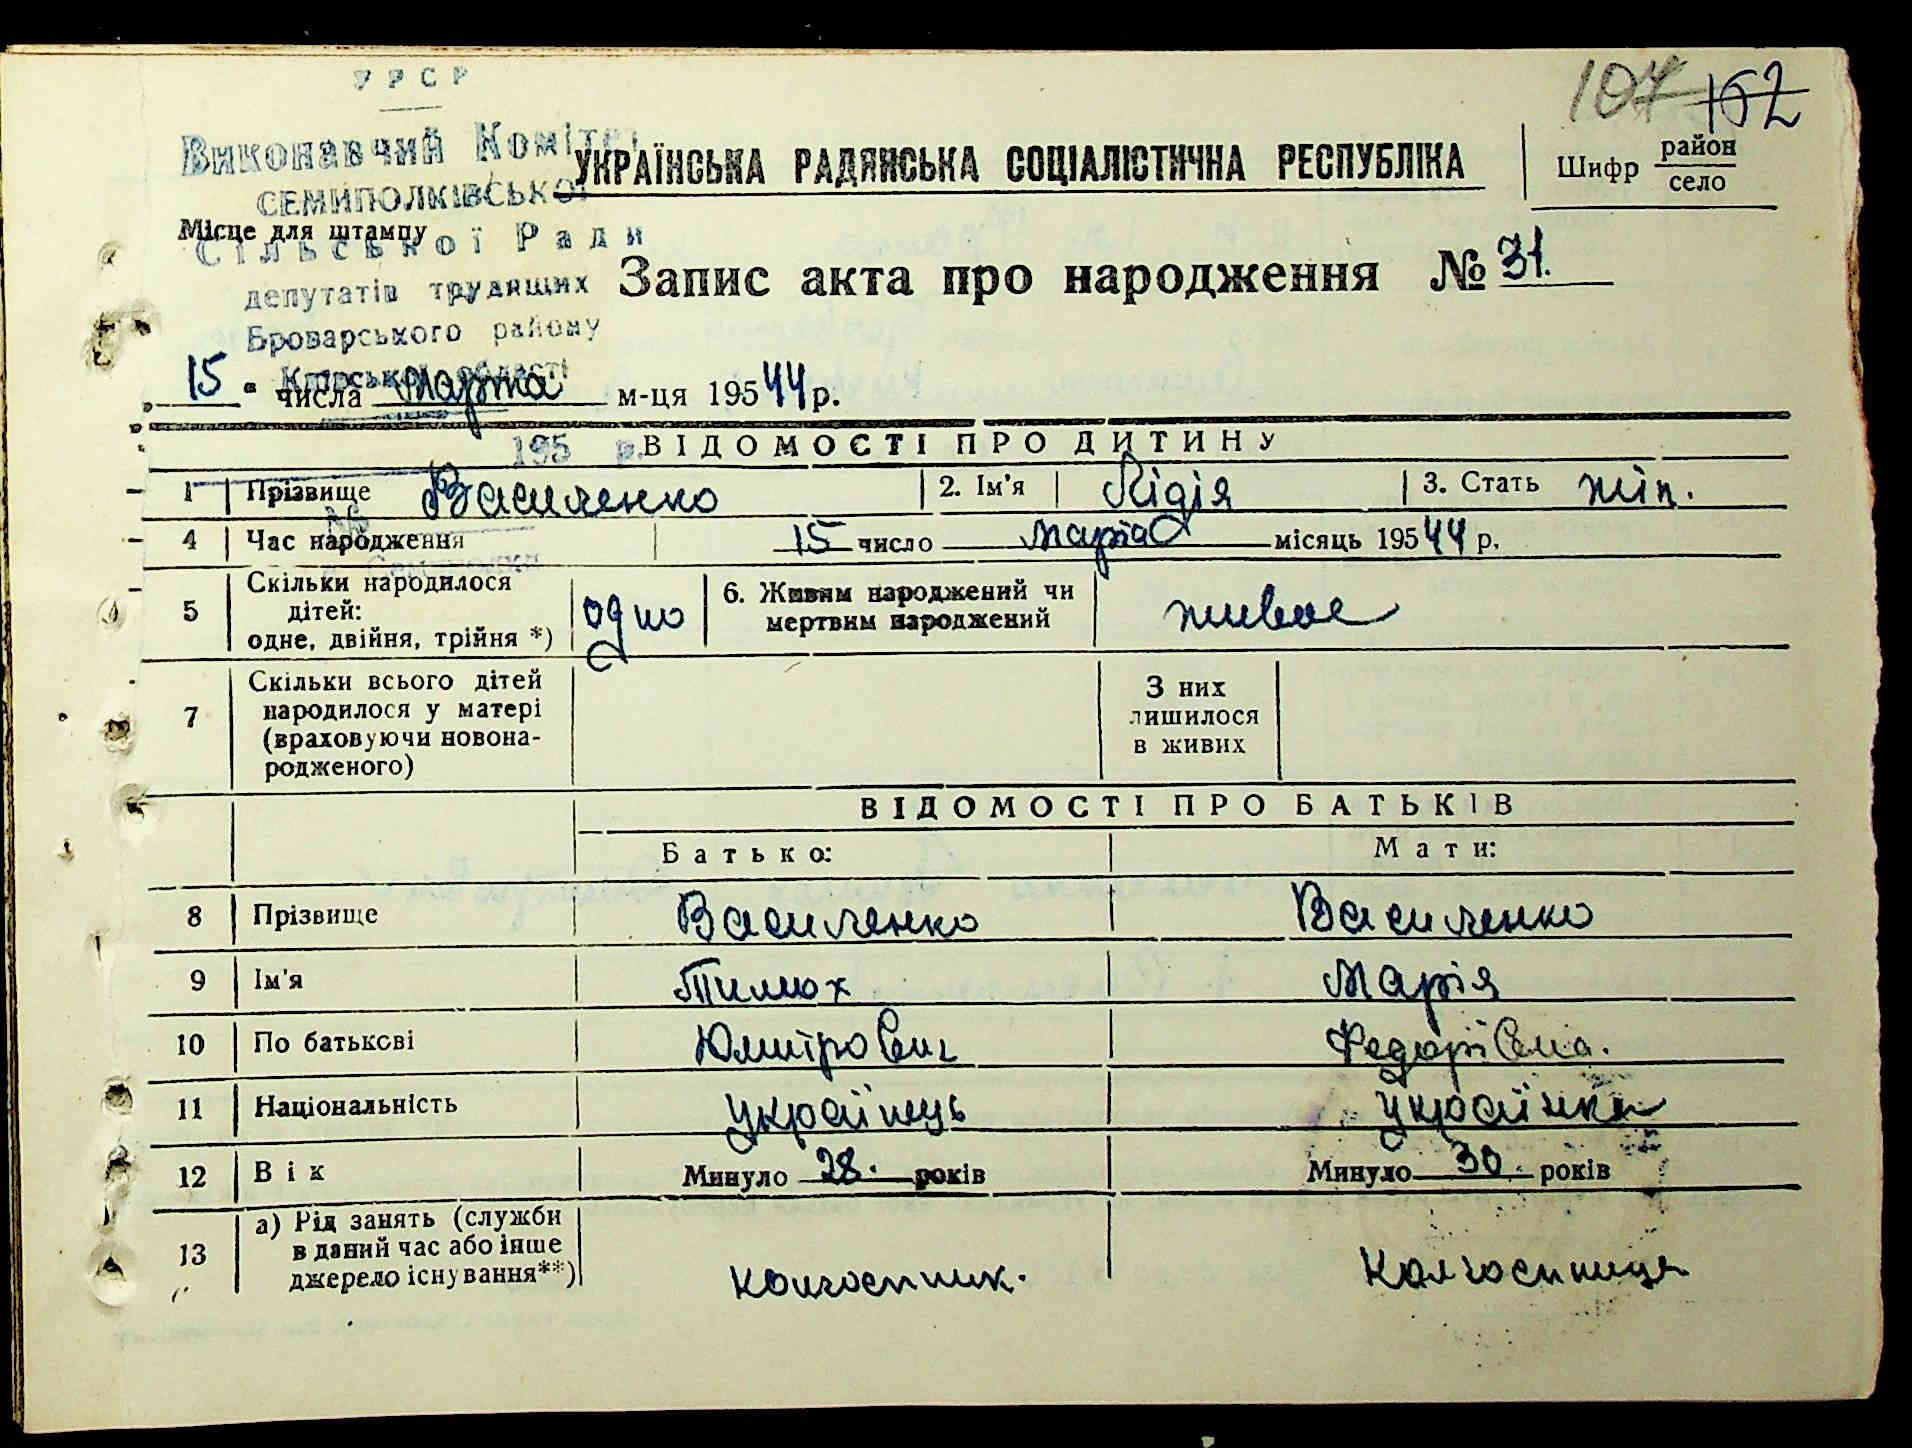 УРСР
107 162
Виконавчий Коміте
УКРАЇНСЬКА РАДЯНСЬКА СОЦІАЛІСТИЧНА РЕСПУБЛІКА
Шифр район
село
СЕМИПОЛКІВСЬКОЇ
Місце для штампу
Сільської Ради
Запис акта про народження № 31.
депутатів трудящих
Броварського району
Київської області
15 " числа марта м-ця 195 44 р.
195 р.
ВІДОМОСТІ ПРО ДИТИНУ
1 Прізвище Василенко 2. Ім'я Лідія 3. Стать жін.
№
4 Час народження 15 число марта місяць 195 44 р.
с. Семиполки
5 Скільки народилося дітей: одне, двійня, трійня *) одно 6. Живим народжений чи мертвим народжений живое
7 Скільки всього дітей народилося у матері (враховуючи новона-родженого) З них лишилося в живих
ВІДОМОСТІ ПРО БАТЬКІВ
Батько: Мати:
8 Прізвище Василенко Василенко
9 Ім'я Тимох Марія
10 По батькові Юмитрович Федорівна.
11 Національність українець українка
12 Вік Минуло 28. років Минуло 30. років
13 а) Рід занять (служби в даний час або інше джерело існування**) колгоспник. Колгоспниця